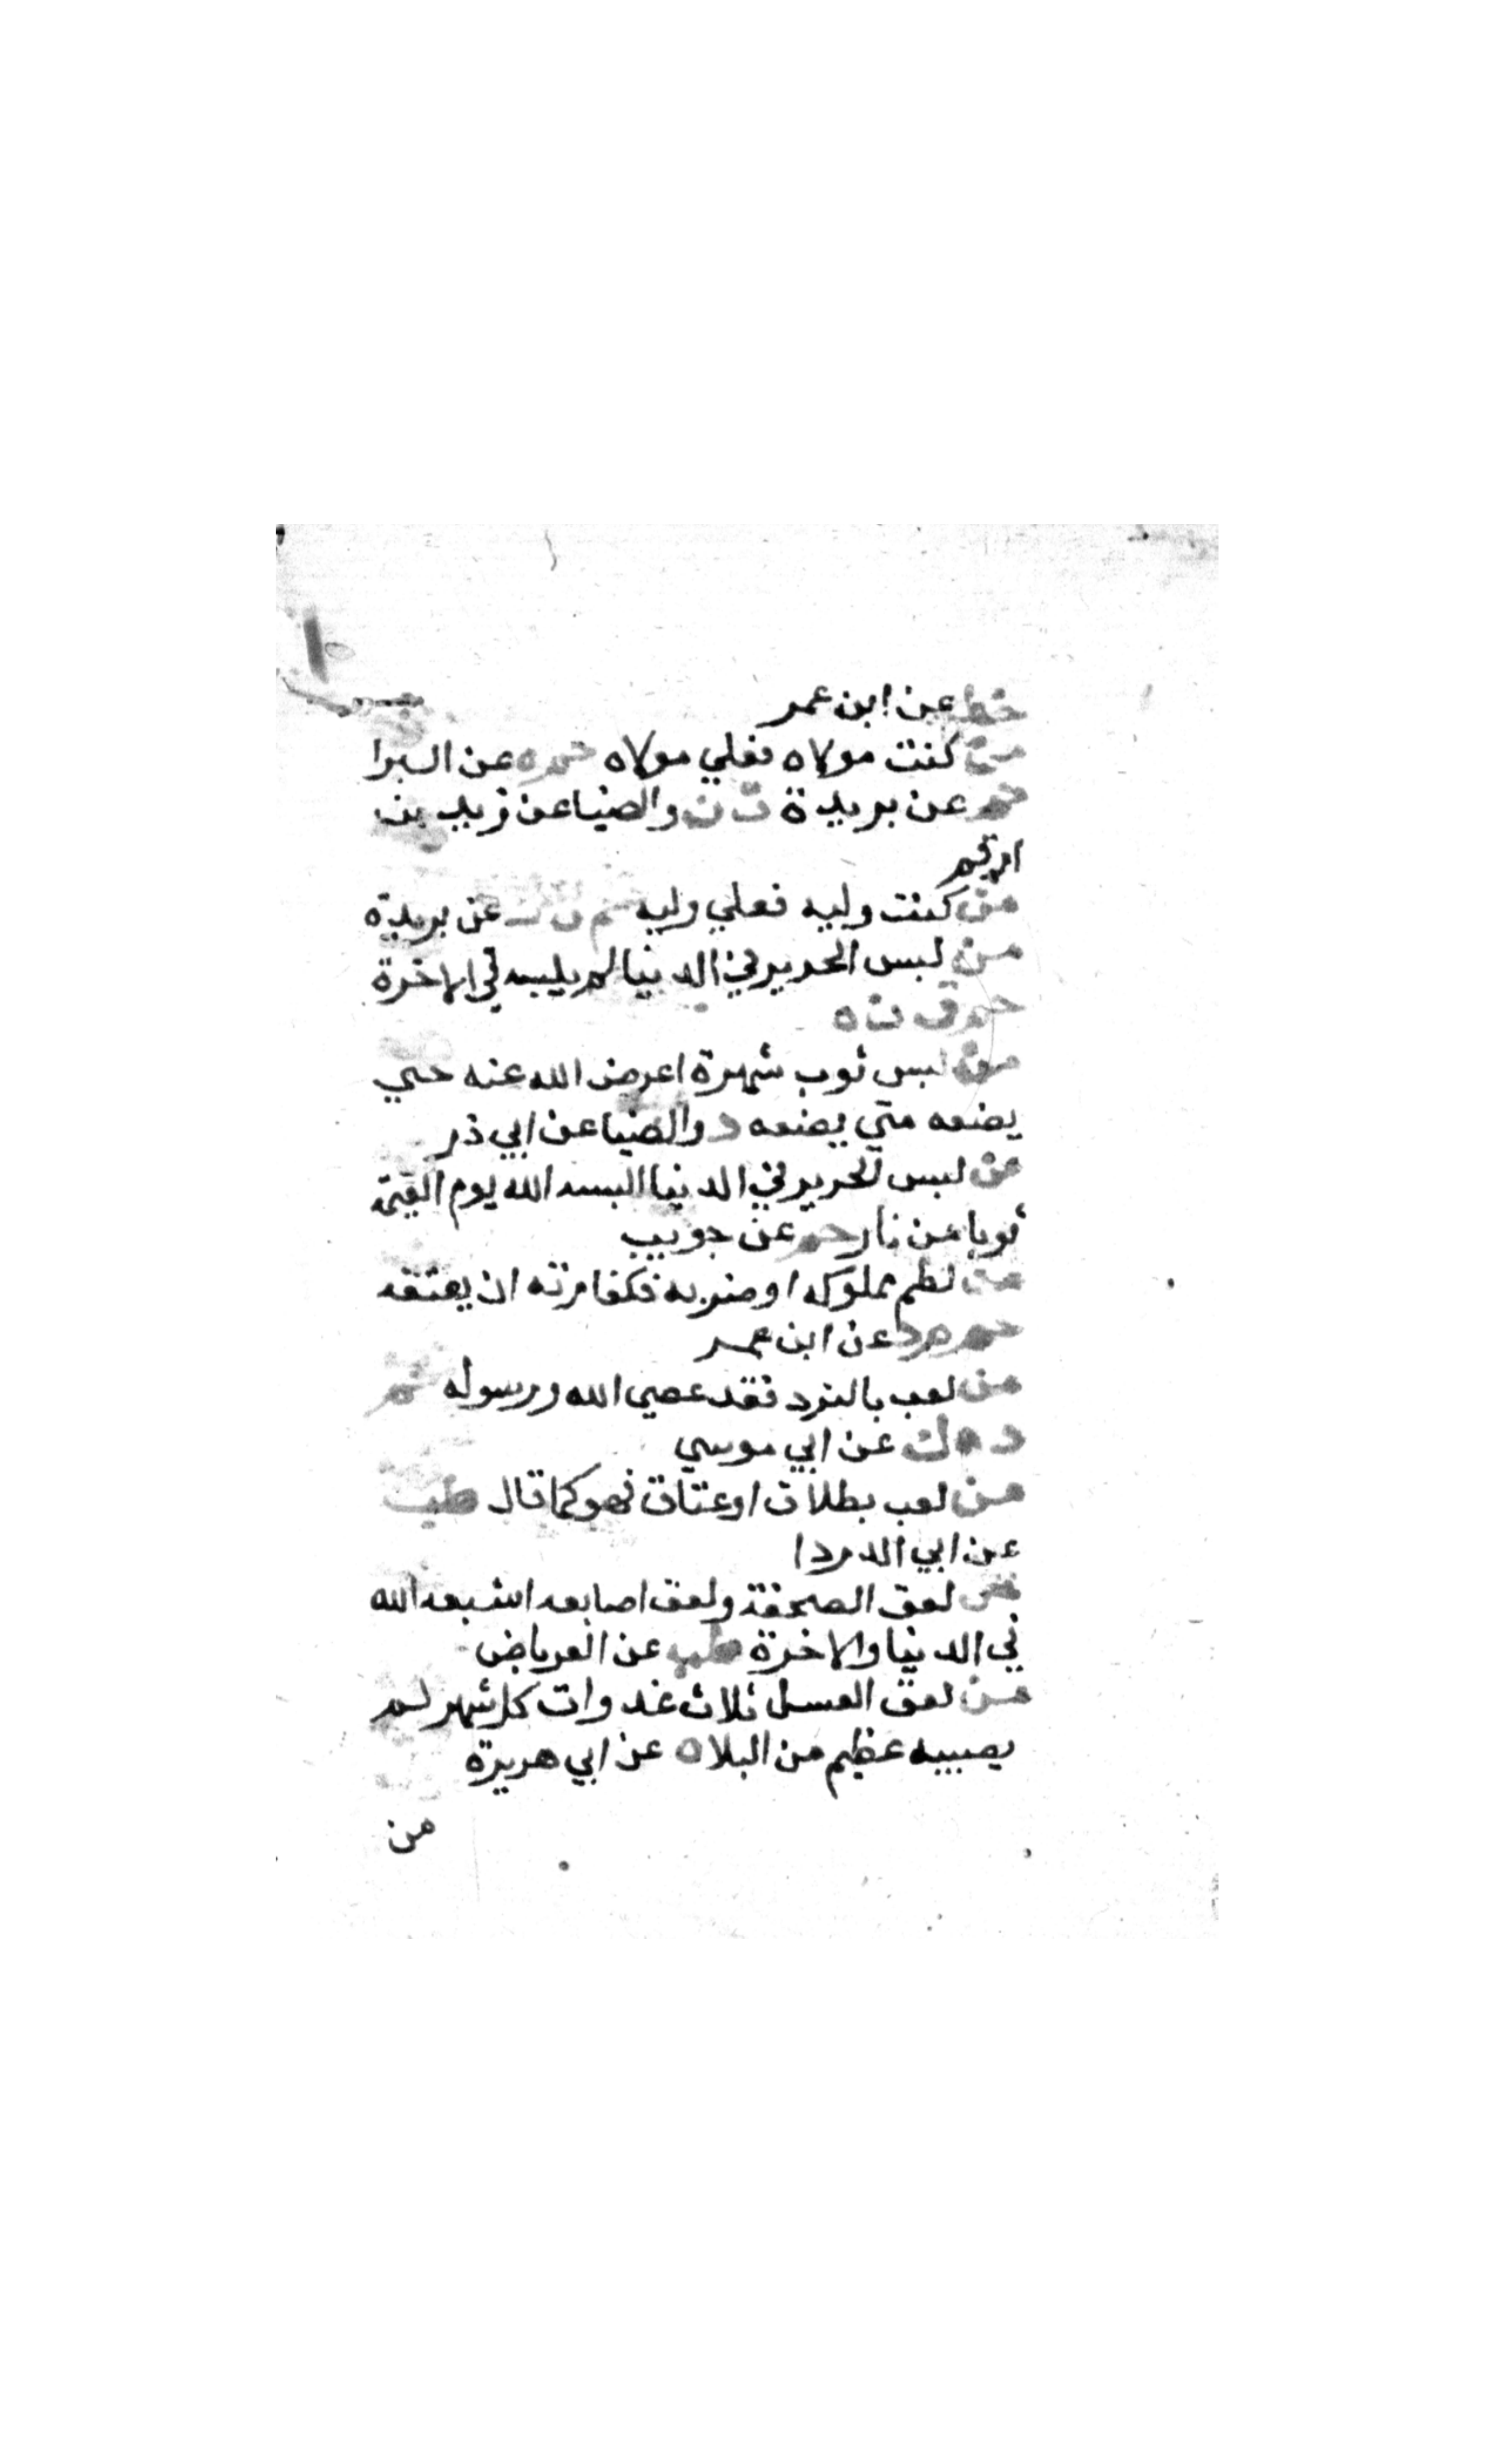 خط عن ابن عمر
من كنت مولاه فعلي مولاه حم ه عن البرا
حم عن بريدة ت ن والضيا عن زيد بن
ارقم
من كنت وليه فعلي وليه حم ن ك عن بريدة
من لبس الحرير في الدنيا لم يلبسه في الاخرة
حم ق ن ه
من لبس ثوب شهرة اعرض الله عنه حتي
يضعه متي يضعه د والضيا عن ابي ذر
من لبس الحرير في الدنيا البسه الله يوم القيمة
ثوبا من نار حم عن جويب
من لطم مملوكه او ضربه فكفارته ان يعتقه
حم م د عن ابن عمر
من لعب بالنرد فقد عصي الله ورسوله حم
د ه ك عن ابي موسي
من لعب بطلاق او عتاق فهو كما قال طب
عن ابي الدردا
من لعق الصحفة ولعق اصابعه اشبعه الله
في الدنيا والاخرة طب عن العرباض
من لعق العسل ثلاث غدوات كل شهر لم
يصيبه عظيم من البلا ه عن ابي هريرة
من